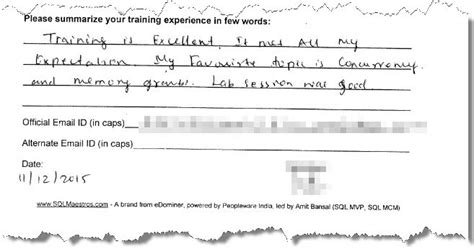 Please summarize your training experience in few words:
Training is Excellent. It met All my
Expectation. My Favourite topic is Concurrency
and memory grants. Lab session was good.
Official Email ID (in caps)
Alternate Email ID (in caps)
Date:
11/12/2015
www.SQLMaestros.com - A brand from eDominer, powered by Peopleware India, led by Amit Bansal (SQL MVP, SQL MCM)